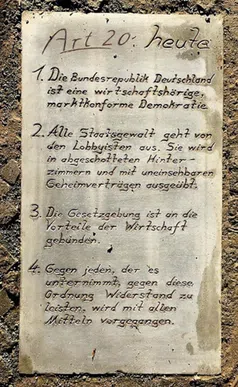 Art 20: heute
1. Die Bundesrepublik Deutschland
ist eine wirtschaftshörige,
marktkonforme Demokratie
2. Alle Staatsgewalt geht von
den Lobbyisten aus. Sie wird
in abgeschotteten Hinter-
zimmern und mit uneinsehbaren
Geheimverträgen ausgeübt.
3. Die Gesetzgebung ist an die
Vorteile der Wirtschaft
gebunden.
4. Gegen jeden, der es
unternimmt, gegen diese
Ordnung Widerstand zu
leisten, wird mit allen
Mitteln vorgegangen.